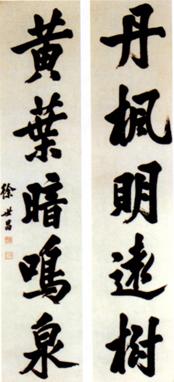 丹楓明遠樹
黃葉暗鳴泉
徐世昌